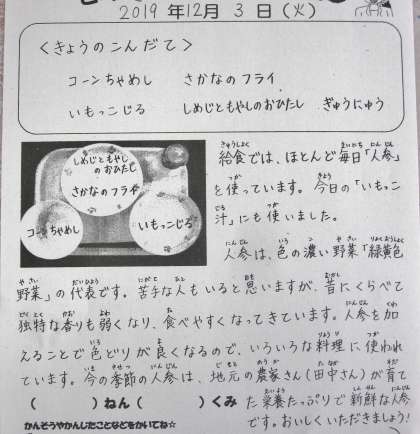 2019年12月 3日(火)
<きょうのこんだて>
コーンちゃめし さかなのフライ
いもっこじる しめじともやしのおひたし ぎゅうにゅう
しめじともやし
のおひたし
さかなのフライ
コーンちゃめし
いもっこじる
給食では、ほとんど毎日「人参」
を使っています。今日の「いもっこ
汁」にも使いました。
人参は、色の濃い野菜「緑黄色
野菜」の代表です。苦手な人もいると思いますが、昔にくらべて
独特な香りも弱くなり、食べやすくなってきています。人参を加
えることで色どりが良くなるので、いろいろな料理に使われ
ています。今の季節の人参は、地元の農家さん(田中さん)が育て
た栄養たっぷりで新鮮な人参
です。おいしくいただきましょう!
( )ねん( )くみ
かんそうやかんしたことなどをかいてね☆